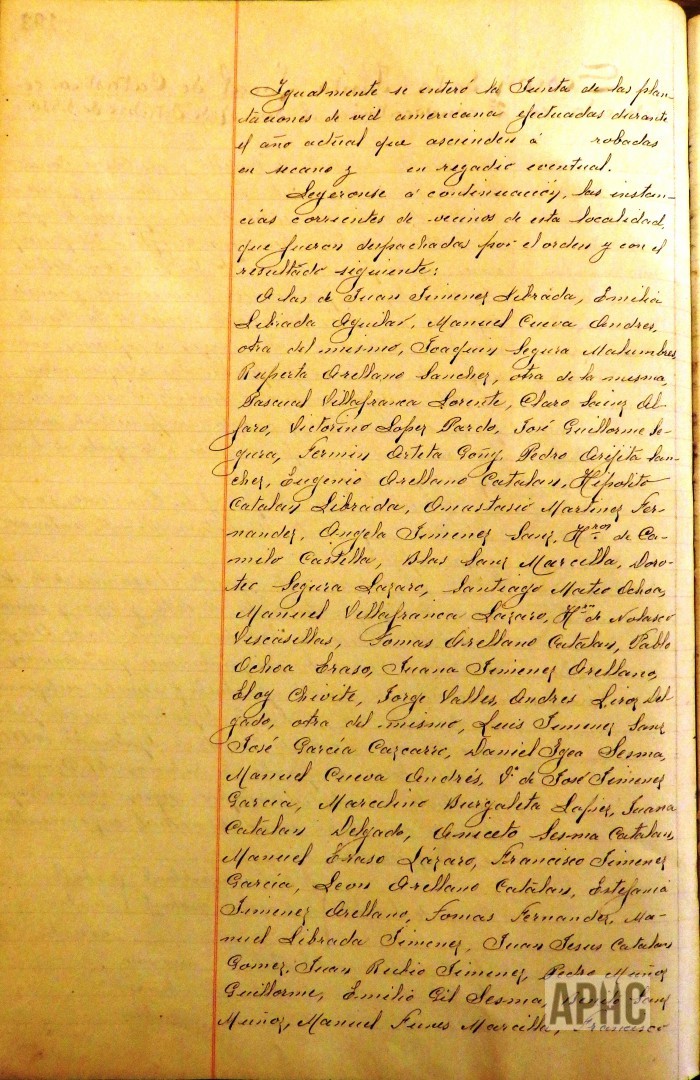 Igualmente se enteró la Junta de las plan-
taciones de vid americana efectuadas durante
el año actual que ascienden á robadas
en secano y en regadio eventual.
Leyeronse á continuación, las instan-
cias corrientes de vecinos de esta localidad,
que fueron despachadas por el orden y con el
resultado siguiente:
A las de Juan Jimenez Librada, Emilia
Librada Aguilar, Manuel Cueva Andres,
otra del mismo, Joaquin Segura Malumbres,
Ruperta Arellano Sanchez, otra de la misma,
Pascual Villafranca Lorente, Claro Sainz Al-
faro, Victorino Lopez Pardo, José Guillorme Se-
gura, Fermin Arteta Goñy, Pedro Arijita San-
chez, Eugenio Arellano Catalan, Hipolito
Catalan Librada, Anastasio Martinez Fer-
nandez, Angela Jimenez Sanz, Hros de Ca-
milo Castilla, Blas Sanz Marcilla, Doro-
teo Segura Lazaro, Santiago Mateo Ochoa,
Manuel Villafranca Lazaro, Hros de Nolasco
Viscasillas, Tomas Arellano Catalan, Pablo
Ochoa Eraso, Juana Jimenez Arellano,
Eloy Chivite, Jorge Valles, Andres Liroz Del-
gado, otra del mismo, Luis Jimenez Sanz
José García Cazcarro, Daniel Igea Sesma,
Manuel Cueva Andrés, Va de José Jimenez
Garcia, Marcelino Burgaleta Lopez, Juana
Catalan Delgado, Aniceto Sesma Catalan,
Manuel Eraso Lázaro, Francisco Jimenez
García, Leon Arellano Catalan, Estefania
Jimenez Arellano, Tomas Fernandez, Ma-
nuel Librada Jimenez, Juan Jesus Catalan
Gomez, Juan Rubio Jimenez, Pedro Muñoz
Guillorme, Emilio Gil Sesma, Sanz
Muñoz, Manuel Funes Marcilla, Francisco
APHC